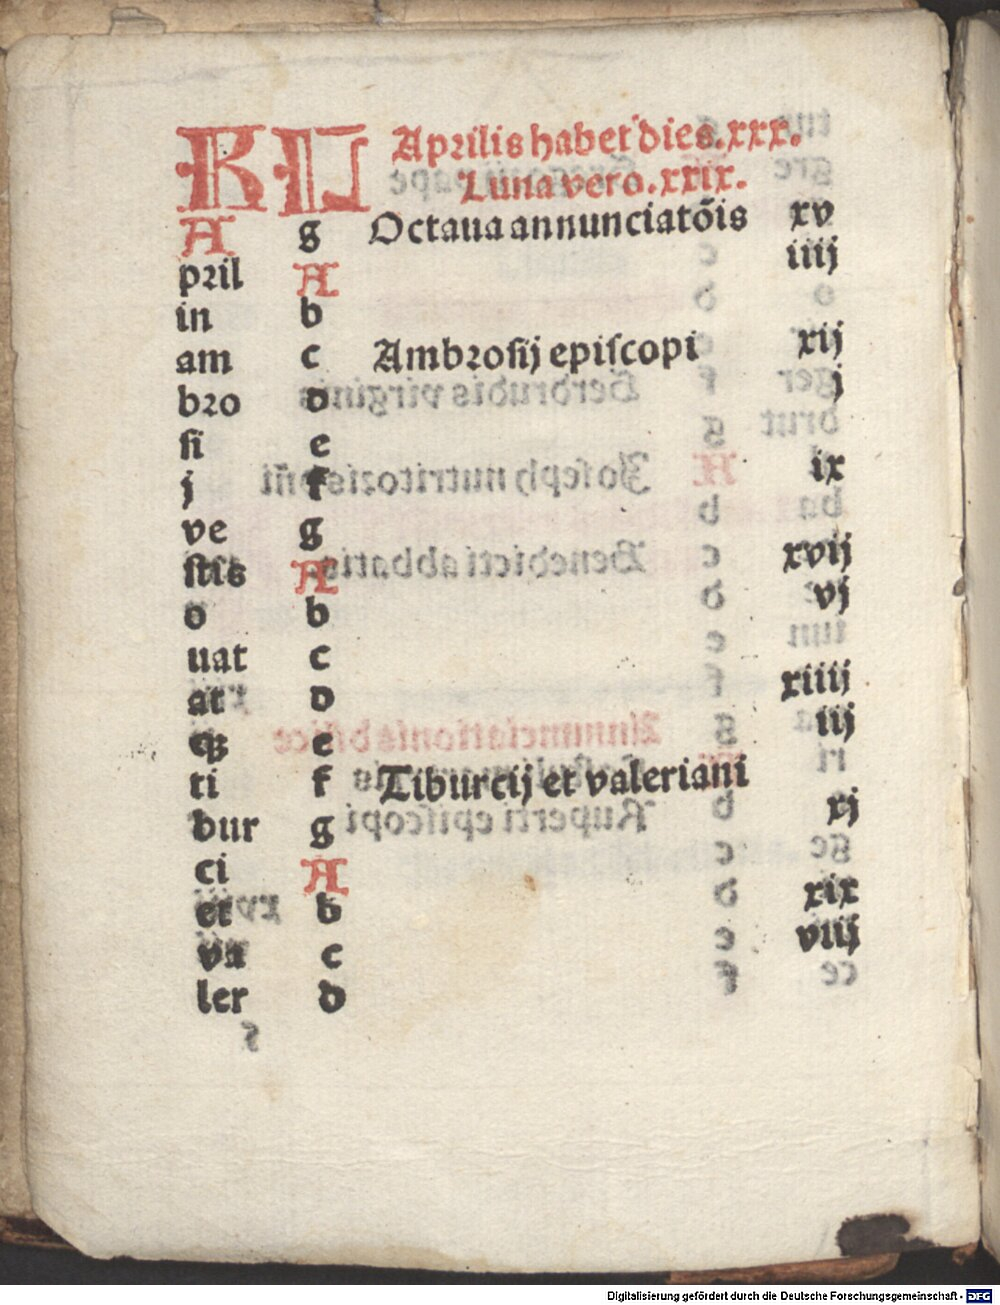 KL Aprilis habet dies.xxx.
Luna vero.xxix.
A g Octaua annunciatõis xv
pril A iiij
in b
am c Ambrosij episcopi xij
bro d j
si e
j f ix
ve g
stis A xvij
o b vj
uat c
at d xiiij
qꝫ e iij
ti f Tiburcij et valeriani
bur g xj
ci A
et b xix
va c viij
ler d
Digitalisierung gefördert durch die Deutsche Forschungsgemeinschaft - DFG